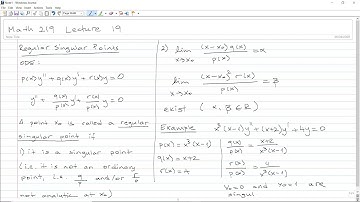 Math 219 Lecture 19
Regular Singular Points
ODE:
p(x)y'' + q(x)y' + r(x)y = 0
y'' + q(x)/p(x) y' + r(x)/p(x) y = 0
A point x₀ is called a regular
singular point if
1) it is a singular point
(i.e. it is not an ordinary
point, i.e. q/p and/or r/p
not analytic at x₀)
2) lim x→x₀ (x-x₀) q(x) / p(x) = α
lim x→x₀ (x-x₀)² r(x) / p(x) = β
exist (α, β ∈ ℝ)
Example x³(x-1)y'' + (x+2)y' + 4y = 0
p(x) = x³(x-1)
q(x) = x+2
r(x) = 4
q(x)/p(x) = x+2 / x³(x-1)
r(x)/p(x) = 4 / x³(x-1)
x₀=0 and x₀=1 are
singul